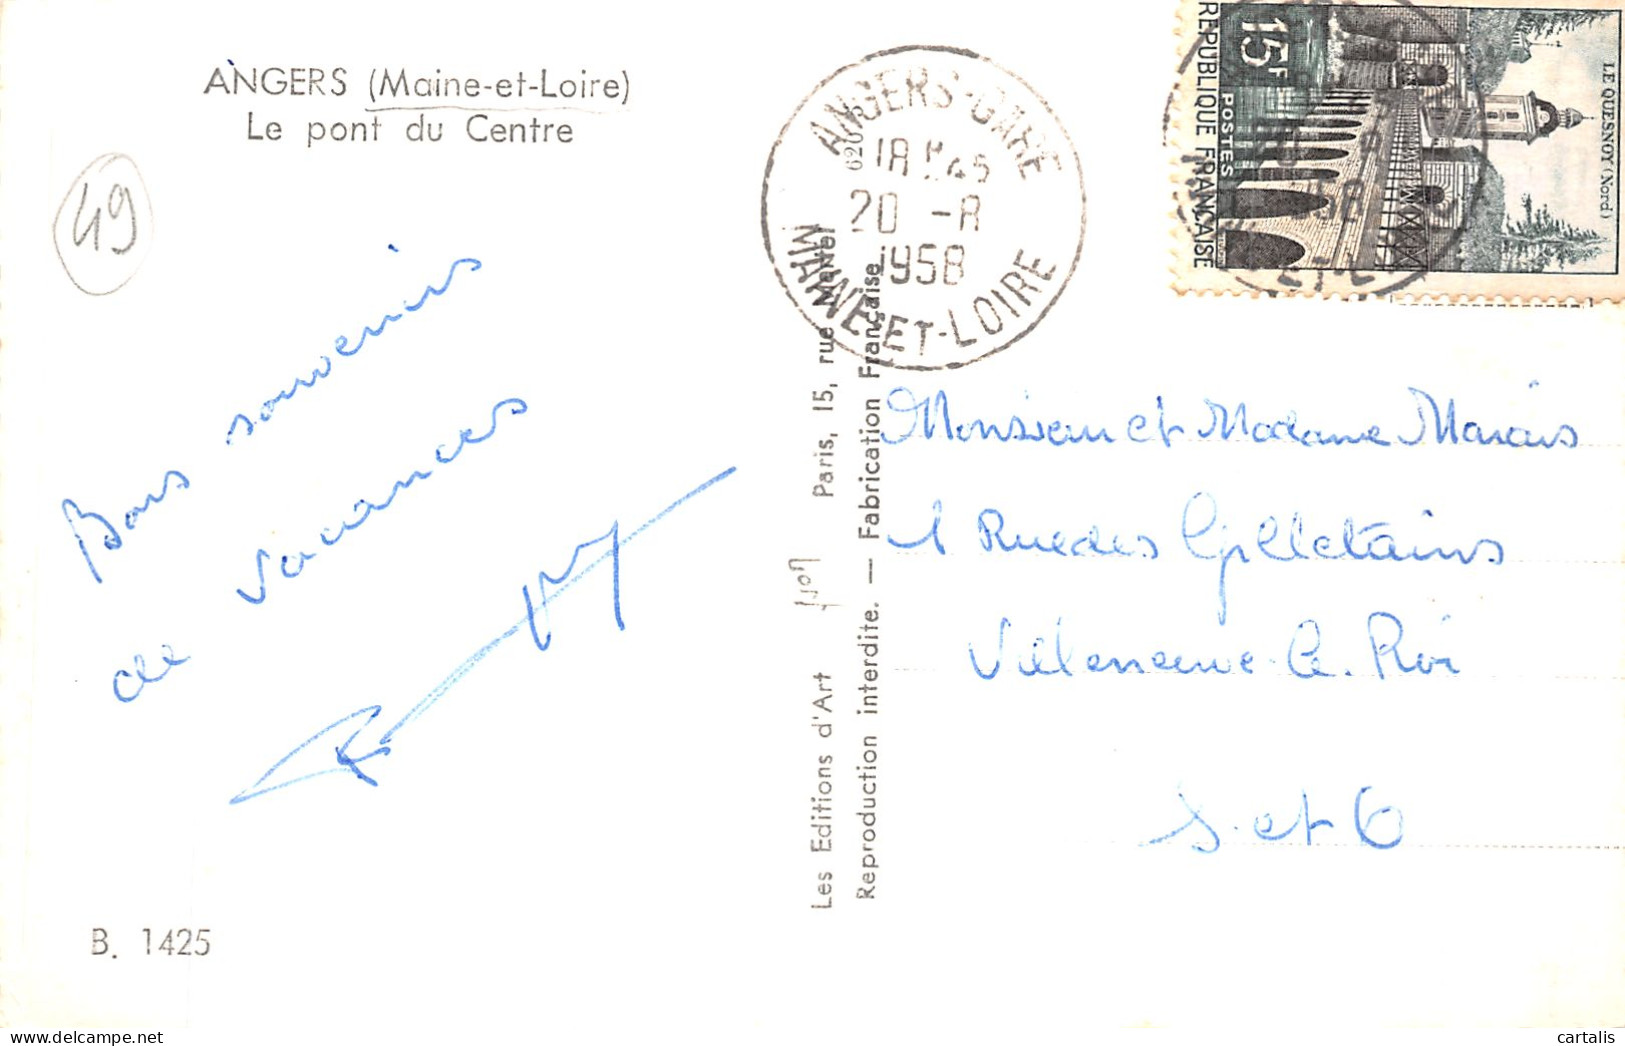 ANGERS (Maine-et-Loire)
Le pont du Centre
49
Bons souvenirs
de vacances
B. 1425
Les Editions d'Art
Paris, 15, rue Martel
Reproduction interdite. — Fabrication Française
ANGERS-GARE
18 H 45
20 -8
1958
MAINE-ET-LOIRE
15F
POSTES
REPUBLIQUE FRANÇAISE
LE QUESNOY (Nord)
Monsieur et Madame Marais
1 Rue des Gilletains
Villeneuve-le-Roi
S. et O
delcampe.net
cartalis